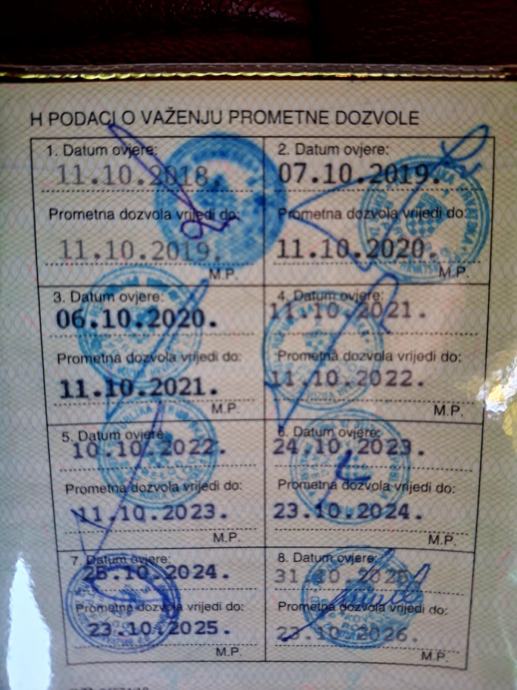 H PODACI O VAŽENJU PROMETNE DOZVOLE
1. Datum ovjere:
11.10.2018.
Prometna dozvola vrijedi do:
11.10.2019.
M.P.
2. Datum ovjere:
07.10.2019.
Prometna dozvola vrijedi do:
11.10.2020.
M.P.
3. Datum ovjere:
06.10.2020.
Prometna dozvola vrijedi do:
11.10.2021.
M.P.
4. Datum ovjere:
11.10.2021.
Prometna dozvola vrijedi do:
11.10.2022.
M.P.
5. Datum ovjere:
10.10.2022.
Prometna dozvola vrijedi do:
11.10.2023.
M.P.
6. Datum ovjere:
24.10.2023.
Prometna dozvola vrijedi do:
23.10.2024.
M.P.
7. Datum ovjere:
25.10.2024.
Prometna dozvola vrijedi do:
23.10.2025.
M.P.
8. Datum ovjere:
31.10.2025.
Prometna dozvola vrijedi do:
23.10.2026.
M.P.